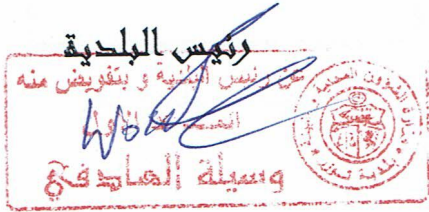 رئيس البلدية
عن رئيس البلدية و بتفويض منه
وسيلة الهادفي
بلدية توزر